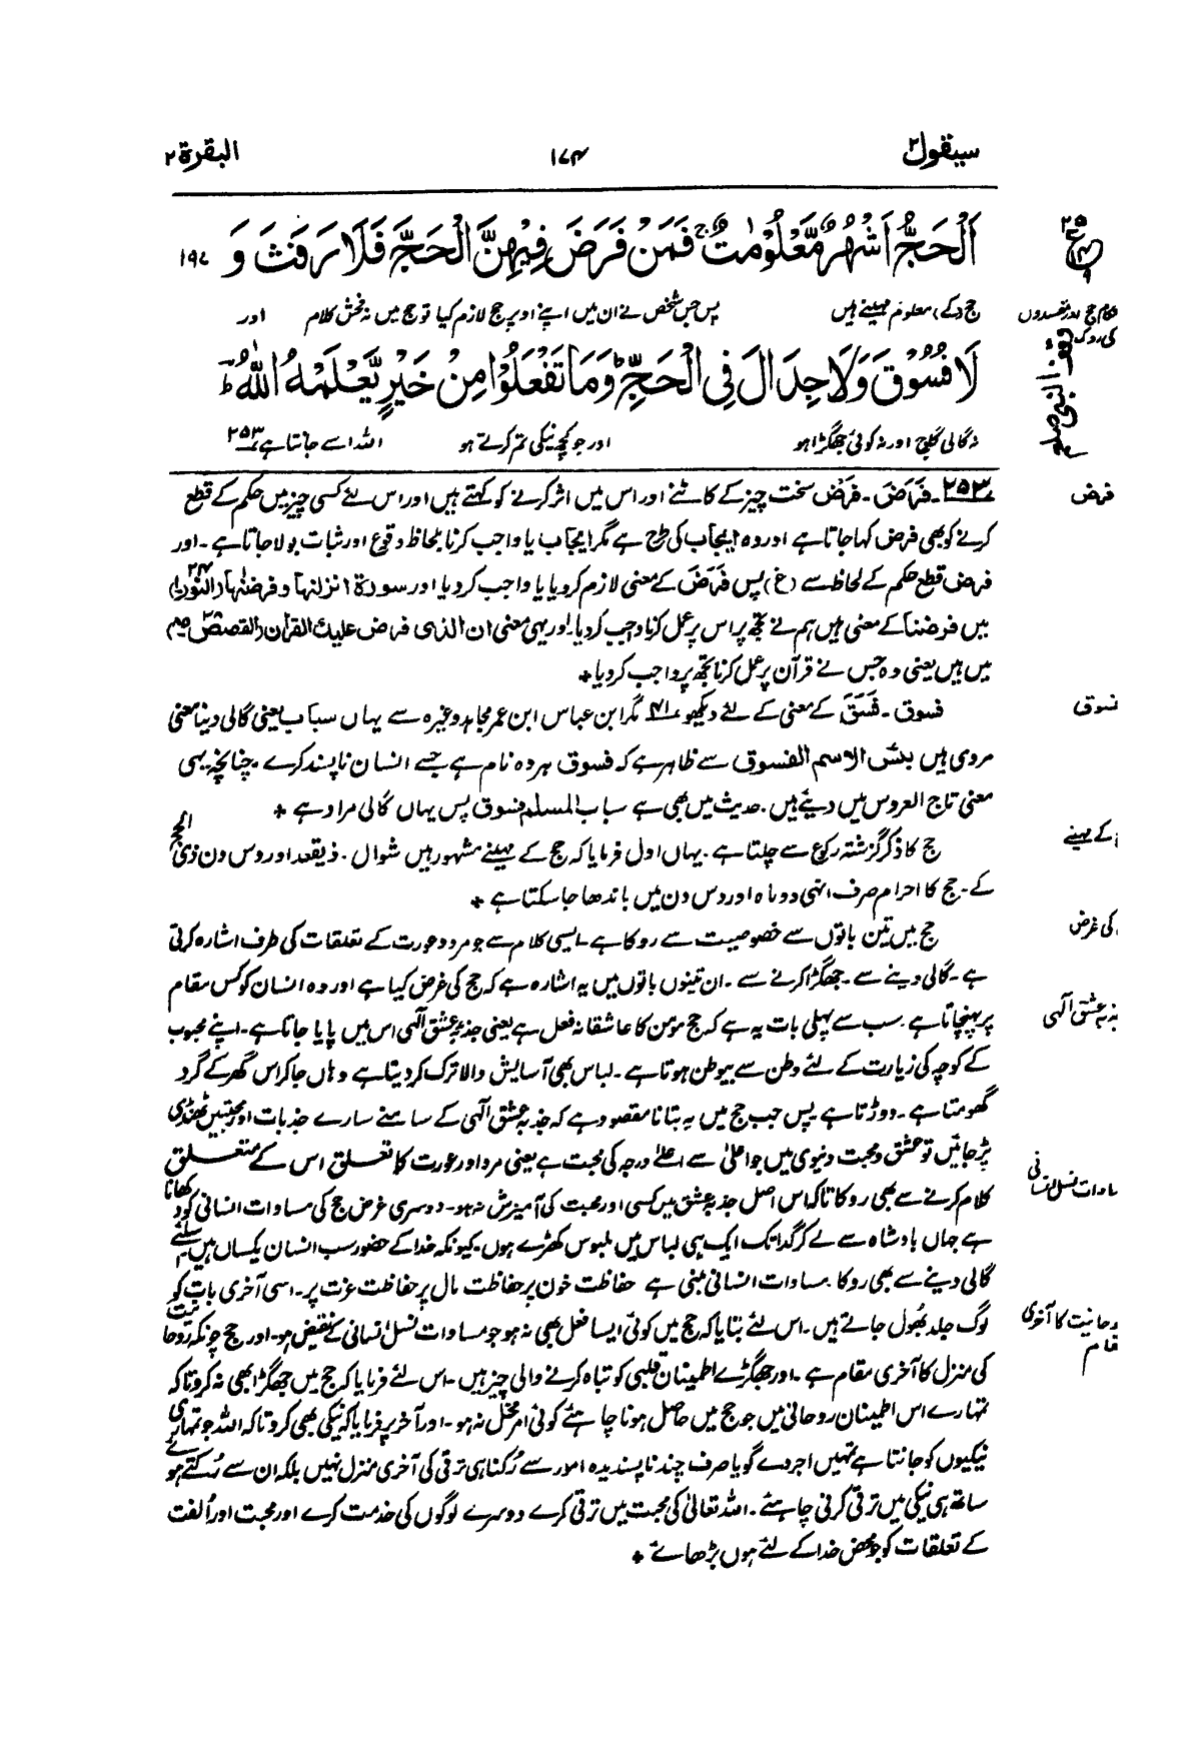 سیقول ۲
۱۷۴
البقرۃ ۲
اَلْحَجُّ اَشْهُرٌ مَّعْلُوْمٰتٌ ۚ فَمَنْ فَرَضَ فِیْهِنَّ الْحَجَّ فَلَا رَفَثَ وَ ۱۹۷
حج (کے) معلوم مہینے ہیں پس جس شخص نے ان میں اپنے اوپر حج لازم کیا تو حج میں نہ فحش کلام اور
لَا فُسُوْقَ وَلَا جِدَالَ فِی الْحَجِّ ؕ وَمَا تَفْعَلُوْا مِنْ خَیْرٍ یَّعْلَمْهُ اللّٰهُ ؕ
نہ گالی گلوچ اور نہ کوئی جھگڑا ہو اور جو کچھ نیکی تم کرتے ہو اللہ اسے جانتا ہے ۲۵۳
فرض
۲۵۳۔ فَرَضَ۔ فَرْض سخت چیز کے کاٹنے اور اس میں اثر کرنے کو کہتے ہیں اور اس لئے کسی چیز میں حکم کے قطع
کرنے کو بھی فرض کہا جاتا ہے اور وہ ایجاب کی طرح ہے مگر ایجاب یا واجب کرنا بلحاظ وقوع اور ثبات بولا جاتا ہے۔ اور
فرض قطع حکم کے لحاظ سے (غ) پس فَرَضَ کے معنی لازم کر دیا یا واجب کر دیا اور سورۃ انزلنٰہا و فرضنٰہا (النور ۲۴)
میں فرضنا کے معنی ہیں ہم نے تجھ پر اس پر عمل کرنا واجب کر دیا۔ اور یہی معنی ان الذی فرض علیک القراٰن (القصص ۲۸)
میں ہیں یعنی وہ جس نے قرآن پر عمل کرنا تجھ پر واجب کر دیا ✦
فسوق
فسوق۔ فَسَقَ کے معنی کے لئے دیکھو ۴۱ مگر ابن عباس ابن عمر مجاہد وغیرہ سے یہاں سباب یعنی گالی دینا معنی
مروی ہیں بئس الاسم الفسوق سے ظاہر ہے کہ فسوق ہر وہ نام ہے جسے انسان ناپسند کرے۔ چنانچہ یہی
معنی تاج العروس میں دیئے ہیں۔ حدیث میں بھی ہے سباب المسلم فسوق پس یہاں گالی مراد ہے ✦
کے مہینے
حج کا ذکر گزشتہ رکوع سے چلتا ہے۔ یہاں اول فرمایا کہ حج کے مہینے مشہور ہیں شوال۔ ذیقعد اور دس دن ذی الحج
کے۔ حج کا احرام صرف انہی دو ماہ اور دس دن میں باندھا جا سکتا ہے ✦
کی غرض
حج میں تین باتوں سے خصوصیت سے روکا ہے۔ ایسی کلام سے جو مرد و عورت کے تعلقات کی طرف اشارہ کرتی
ہے۔ گالی دینے سے۔ جھگڑا کرنے سے۔ ان تینوں باتوں میں یہ اشارہ ہے کہ حج کی غرض کیا ہے اور وہ انسان کو کس مقام
پر پہنچاتا ہے۔ سب سے پہلی بات یہ ہے کہ حج مومن کا عاشقانہ فعل ہے یعنی جذبہ عشق الٰہی اس میں پایا جاتا ہے۔ اپنے محبوب
کے کوچہ کی زیارت کے لئے وطن سے بیوطن ہوتا ہے۔ لباس بھی آسایش والا ترک کر دیتا ہے وہاں جا کر اس گھر کے گرد
گھومتا ہے۔ دوڑتا ہے پس جب حج میں یہ بتانا مقصود ہے کہ جذبہ عشق الٰہی کے سامنے سارے جذبات اور محبتیں ٹھنڈی
پڑ جائیں تو عشق و محبت دنیوی میں جو اعلیٰ سے اعلےٰ درجہ کی محبت ہے یعنی مرد اور عورت کا تعلق اس کے متعلق
کلام کرنے سے بھی روکا تاکہ اس اصل جذبہ عشق میں کسی اور محبت کی آمیزش نہ ہو۔ دوسری غرض حج کی مساوات انسانی کو دکھانا
ہے جہاں بادشاہ سے لے کر گدا تک ایک ہی لباس میں ملبوس کھڑے ہوں۔ کیونکہ خدا کے حضور سب انسان یکساں ہیں اسلئے
گالی دینے سے بھی روکا۔ مساوات انسانی مبنی ہے حفاظت خون پر حفاظت مال پر حفاظت عزت پر۔ اسی آخری بات کو
لوگ جلد بھول جاتے ہیں۔ اس لئے بتایا کہ حج میں کوئی ایسا فعل بھی نہ ہو جو مساوات نسل انسانی کے نقیض ہو۔ اور حج چونکہ روحانیت
کی منزل کا آخری مقام ہے۔ اور جھگڑے اطمینان قلبی کو تباہ کرنے والی چیز ہیں۔ اس لئے فرمایا کہ حج میں جھگڑا بھی نہ کرو تاکہ
تمہارے اس اطمینان روحانی میں جو حج میں حاصل ہونا چاہئے کوئی امر مخل نہ ہو۔ اور آخر پر فرمایا کہ نیکی بھی کرو تاکہ اللہ جو تمہاری
نیکیوں کو جانتا ہے تمہیں اجر دے گویا صرف چند ناپسندیدہ امور سے رکنا ہی ترقی کی آخری منزل نہیں بلکہ ان سے رُکتے ہوئے
ساتھ ہی نیکی میں ترقی کرنی چاہئے۔ اللہ تعالیٰ کی محبت میں ترقی کرے دوسرے لوگوں کی خدمت کرے اور محبت اور اُلفت
کے تعلقات کو جو محض خدا کے لئے ہوں بڑھائے ✦